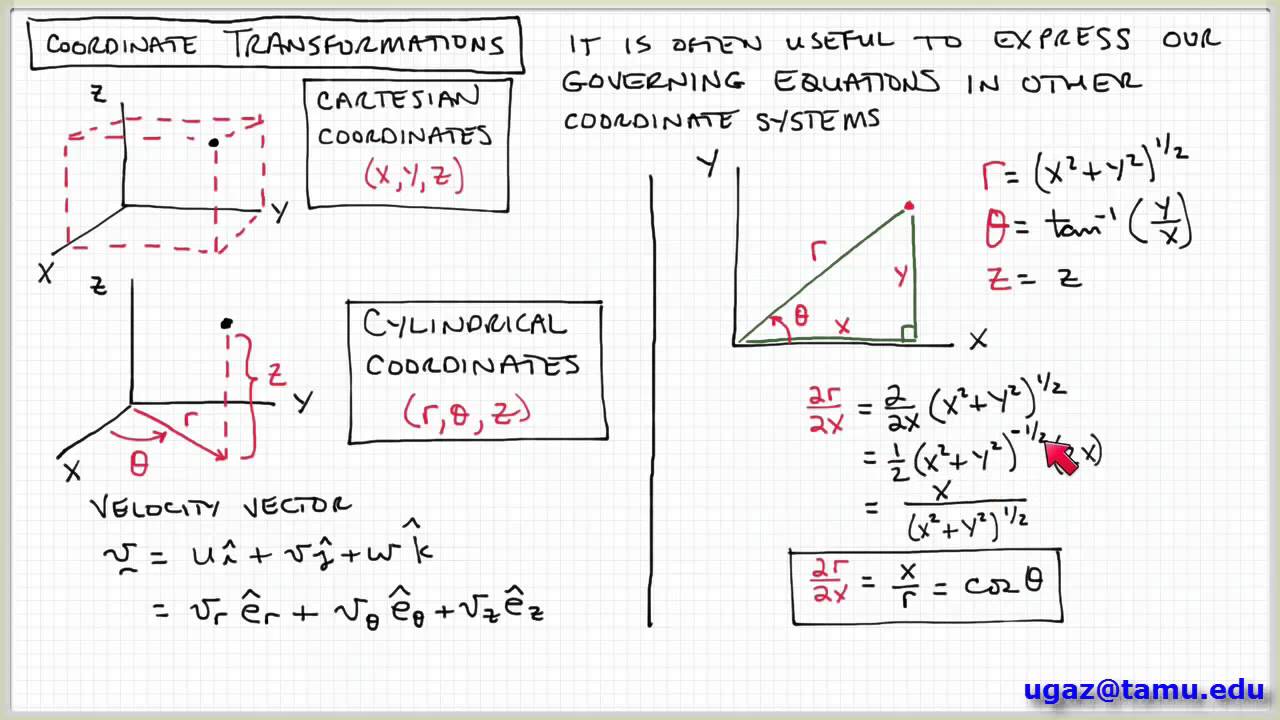 COORDINATE TRANSFORMATIONS
IT IS OFTEN USEFUL TO EXPRESS OUR
GOVERNING EQUATIONS IN OTHER
COORDINATE SYSTEMS
Z
Y
X
CARTESIAN
COORDINATES
(X, Y, Z)
Z
Y
X
r
θ
Z
CYLINDRICAL
COORDINATES
(r, θ, Z)
VELOCITY VECTOR
v = uî + vĵ + wk̂
= vr êr + vθ êθ + vz êz
Y
X
r
θ
X
Y
r = (x² + y²)^1/2
θ = tan⁻¹ (y/x)
z = z
∂r/∂x = ∂/∂x (x² + y²)^1/2
= 1/2 (x² + y²)^-1/2 (2x)
= x/(x² + y²)^1/2
∂r/∂x = x/r = cos θ
ugaz@tamu.edu